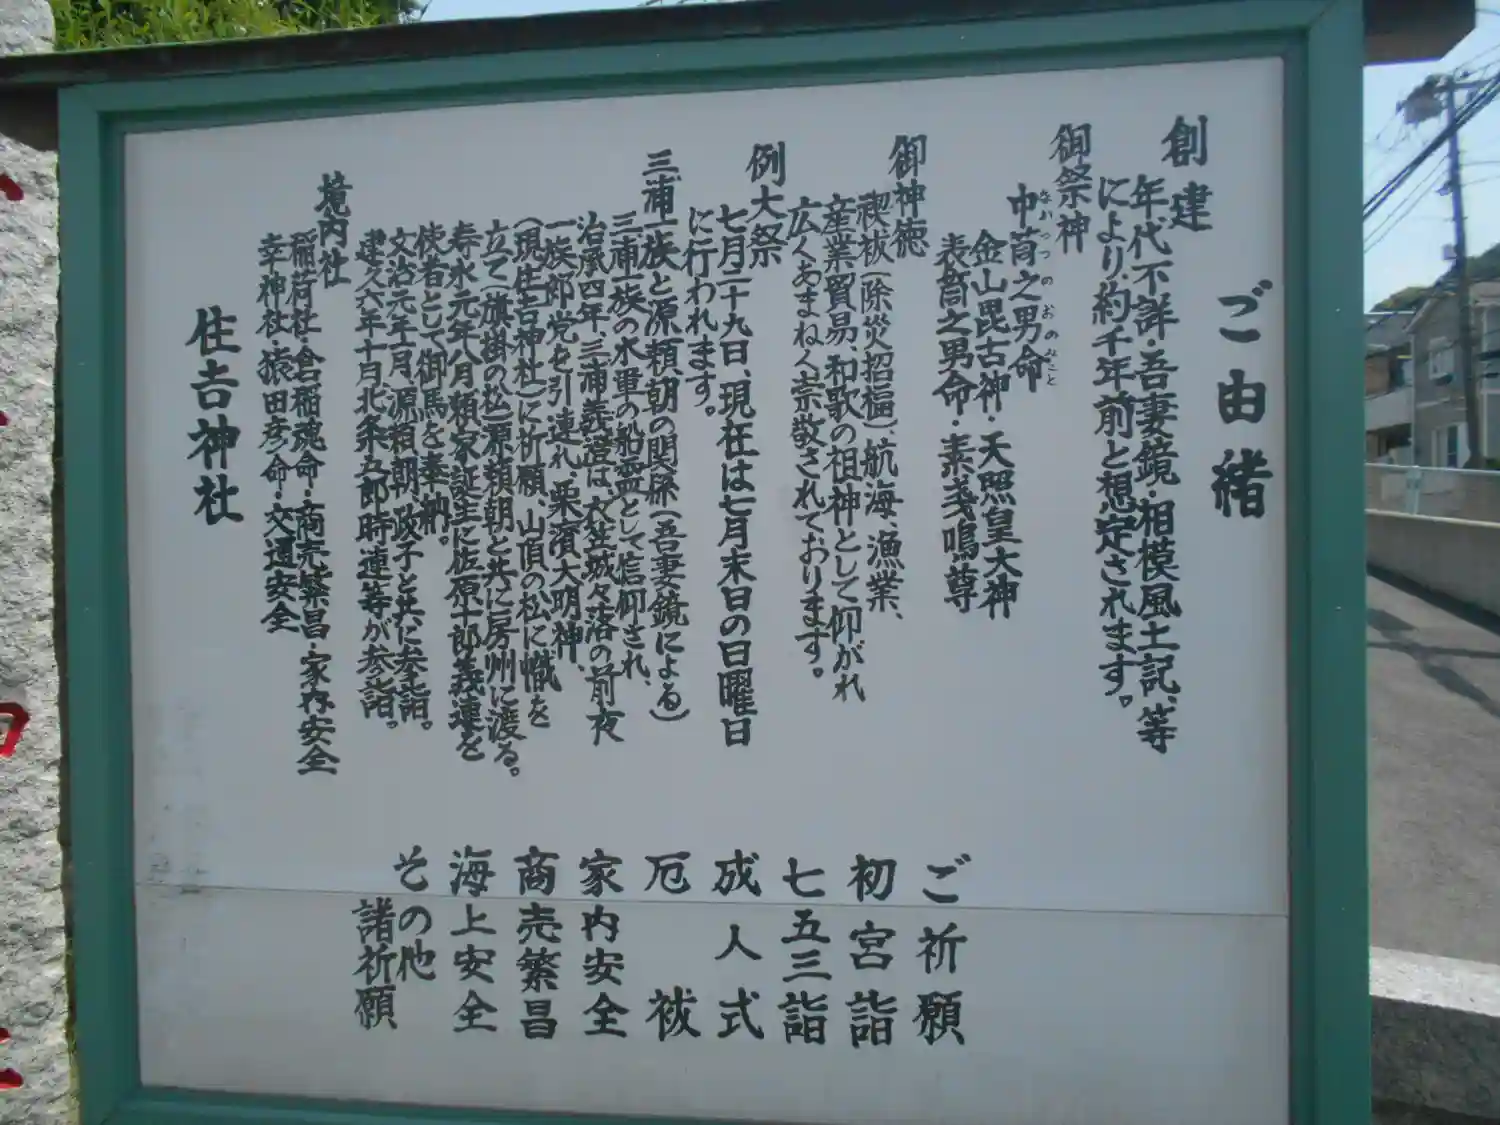 ご由緒
創建
年代不詳・吾妻鏡・相模風土記、等
により、約千年前と想定されます。
御祭神
中筒之男命
なかつつのおのみこと
金山毘古神・天照皇大神
表筒之男命・素戔鳴尊
御神徳
禊祓(除災招福)、航海、漁業、
産業貿易、和歌の祖神として仰がれ
広くあまねく崇敬されております。
例大祭
七月二十九日、現在は七月末日の日曜日
に行われます。
三浦一族と源頼朝の関係(吾妻鏡による)
三浦一族の水軍の船霊として信仰され、
治承四年、三浦義澄は、衣笠城々落の前夜
一族郎党を引連れ、栗濱大明神、
(現住吉神社)に祈願、山頂の松に幟を
立て(旗掛の松)源頼朝と共に房州に渡る。
寿永元年八月頼家誕生に佐原十郎義連を
使者として御馬を奉納。
文治元年正月、源頼朝、政子と共に参詣。
建久六年十月、北条五郎時連等が参詣。
境内社
稲荷社・倉稲魂命・商売繁昌・家内安全
幸神社・猿田彦命・交通安全
住吉神社
ご祈願
初宮詣
七五三詣
成人式
厄祓
家内安全
商売繁昌
海上安全
その他
諸祈願